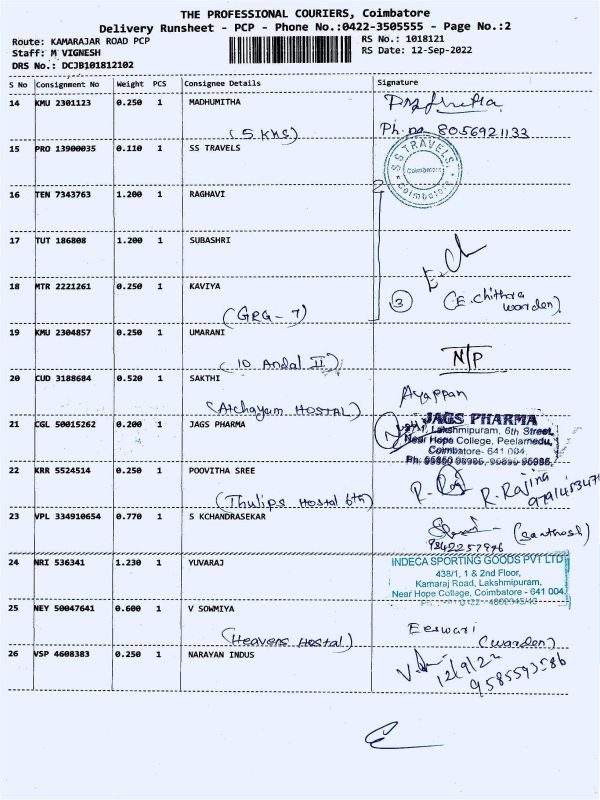 THE PROFESSIONAL COURIERS, Coimbatore
Delivery Runsheet - PCP - Phone No.:0422-3505555 - Page No.:2
Route: KAMARAJAR ROAD PCP
RS No.: 1018121
Staff: M VIGNESH
RS Date: 12-Sep-2022
DRS No.: DCJB101812102
S No Consignment No Weight PCS Consignee Details Signature
14 KMU 2301123 0.250 1 MADHUMITHA
(5 KMS) Ph. no 8056921133
15 PRO 13900035 0.110 1 SS TRAVELS
S S TRAVELS Coimbatore Coimbatore
16 TEN 7343763 1.200 1 RAGHAVI
17 TUT 186808 1.200 1 SUBASHRI
E. Ch
18 MTR 2221261 0.250 1 KAVIYA
(GRG - 7) 3 (E. Chithra warden)
19 KMU 2304857 0.250 1 UMARANI
(10 Andal II) N/P
20 CUD 3188684 0.520 1 SAKTHI
(Atchayam HOSTAL) Ayappan
21 CGL 50015262 0.200 1 JAGS PHARMA
JAGS PHARMA
Lakshmipuram, 6th Street,
Near Hope College, Peelamedu,
Coimbatore- 641 004.
22 KRR 5524514 0.250 1 POOVITHA SREE
(Thulips Hostal 6th) R. Rajina
23 VPL 334910654 0.770 1 S KCHANDRASEKAR
(Santhosh)
9342257996
24 NRI 536341 1.230 1 YUVARAJ
INDECA SPORTING GOODS PVT LTD
438/1, 1 & 2nd Floor,
Kamaraj Road, Lakshmipuram,
Near Hope College, Coimbatore - 641 004.
25 NEY 50047641 0.600 1 V SOWMIYA
(Heavens Hostal) Eeswari (warden)
26 VSP 4608383 0.250 1 NARAYAN INDUS
12/9/22
9585593586